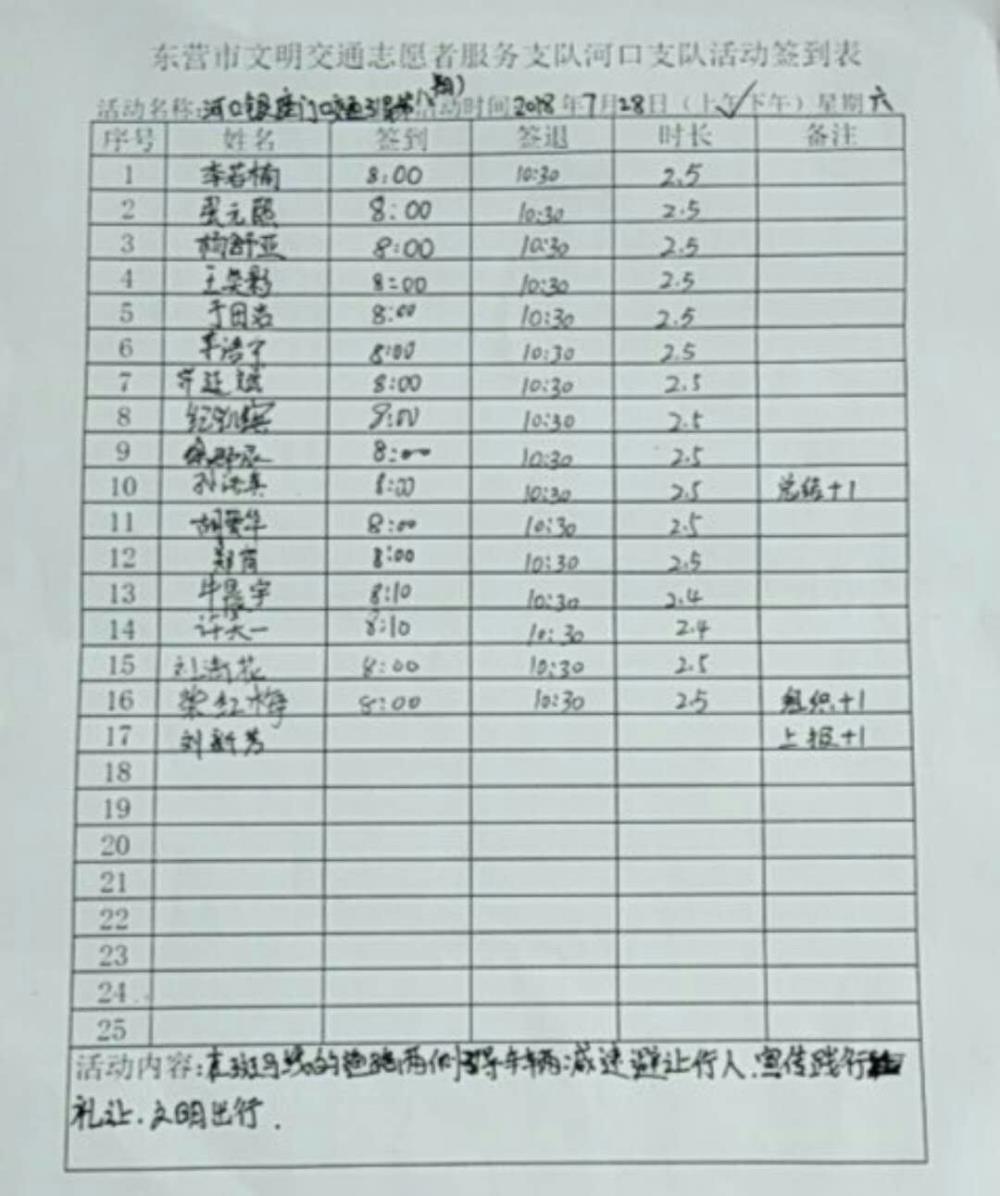 东营市文明交通志愿者服务支队河口支队活动签到表
活动名称:河口银座门口交通引导第八期) 活动时间2018年7月28日（上午√下午）星期六
序号 姓名 签到 签退 时长 备注
1 李若楠 8:00 10:30 2.5
2 8:00 10:30 2.5
3 杨舒亚 8:00 10:30 2.5
4 王奕影 8:00 10:30 2.5
5 于田岩 8:00 10:30 2.5
6 李浩宁 8:00 10:30 2.5
7 8:00 10:30 2.5
8 纪凯宾 8:00 10:30 2.5
9 8:00 10:30 2.5
10 8:00 10:30 2.5 总结+1
11 胡爱华 8:00 10:30 2.5
12 8:00 10:30 2.5
13 牛晨宇 8:10 10:30 2.4
14 许天一 8:10 10:30 2.4
15 8:00 10:30 2.5
16 荣红梅 8:00 10:30 2.5 组织+1
17 刘新芳 上报+1
18
19
20
21
22
23
24
25
活动内容:在斑马线的道路两侧引导车辆减速避让行人.宣传践行
礼让.文明出行.